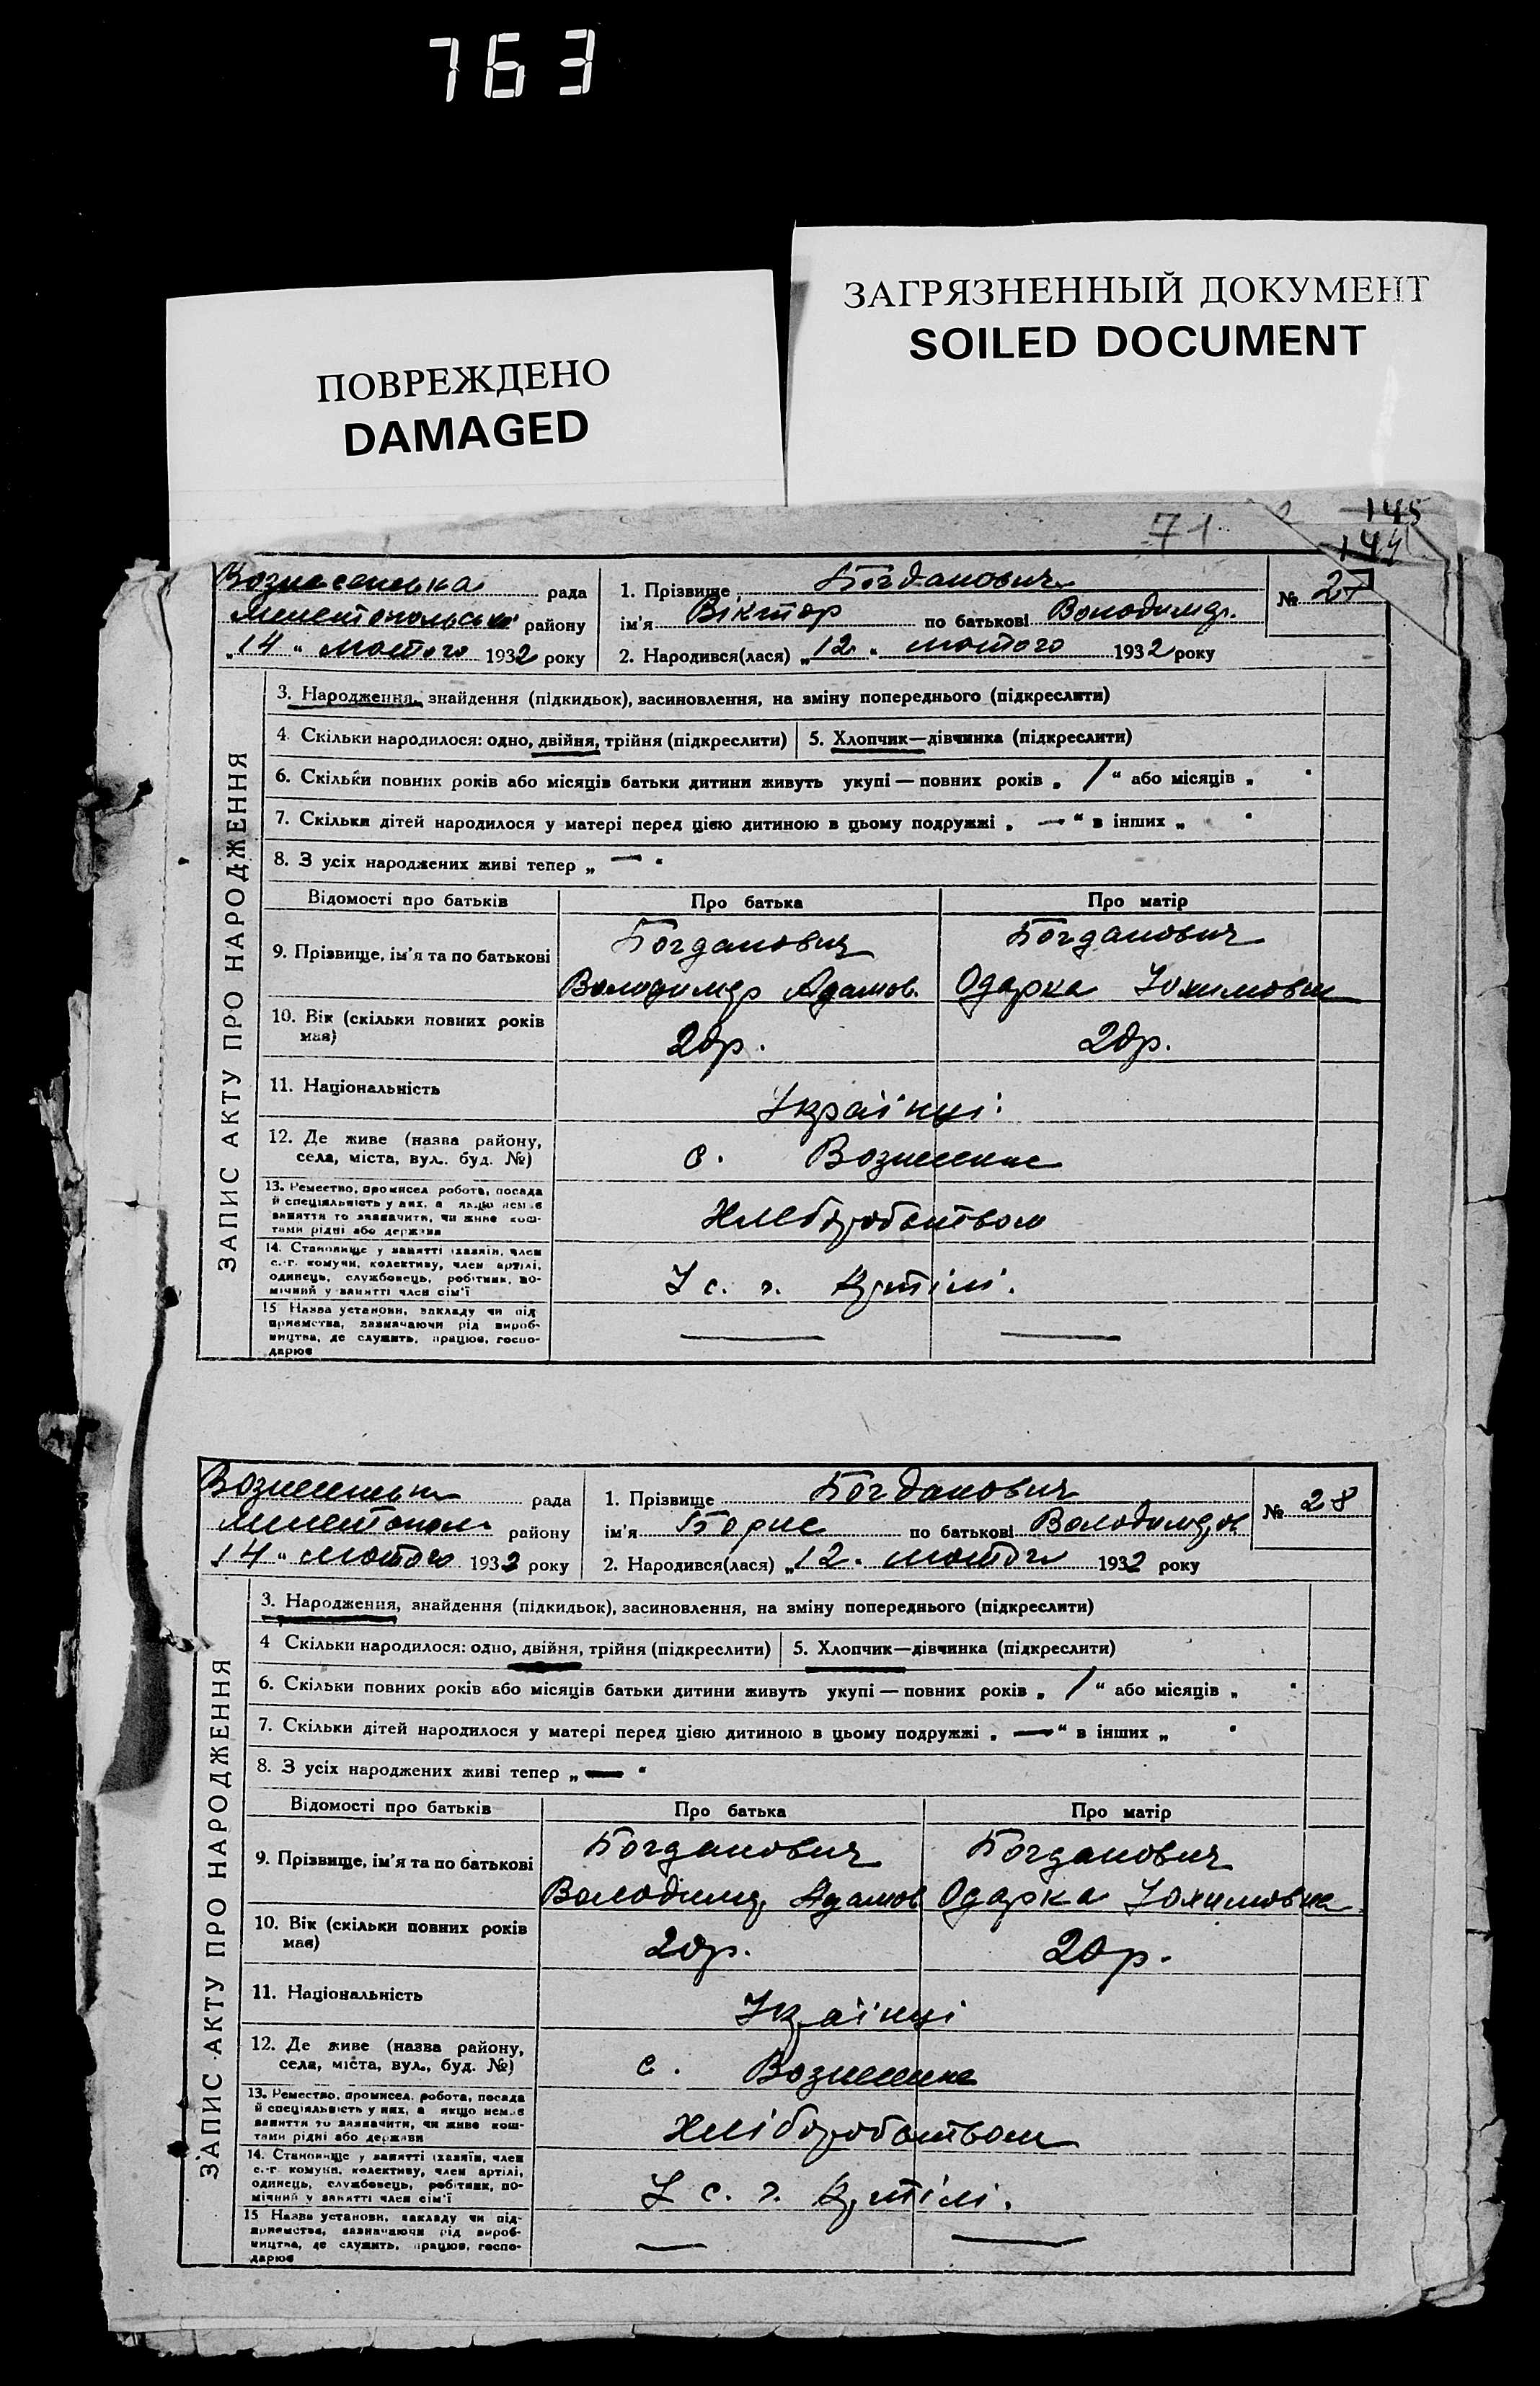 763
ЗАГРЯЗНЕННЫЙ ДОКУМЕНТ
SOILED DOCUMENT
ПОВРЕЖДЕНО
DAMAGED
71
145
144
Вознесенська рада
Мелетопольськ району
„14“ лютого 1932 року
1. Прізвище Богданович
ім'я Віктор по батькові Володимир.
2. Народився(лася) „12“ лютого 1932 року
№ 27
ЗАПИС АКТУ ПРО НАРОДЖЕННЯ
3. Народження, знайдення (підкидьок), засиновлення, на зміну попереднього (підкреслити)
4. Скільки народилося: одно, двійня, трійня (підкреслити)
5. Хлопчик—дівчинка (підкреслити)
6. Скільки повних років або місяців батьки дитини живуть укупі — повних років „ 1 “ або місяців „ “
7. Скільки дітей народилося у матері перед цією дитиною в цьому подружжі „ — “ в інших „ “
8. З усіх народжених живі тепер „ — “
Відомості про батьків Про батька Про матір
9. Прізвище, ім'я та по батькові
Богданович Богданович
Володимир Адамов. Одарка Юхимовна
10. Вік (скільки повних років має)
20р. 20р.
11. Національність
Українці
12. Де живе (назва району, села, міста, вул. буд. №)
с. Вознесенка
13. Ремество, промисел, робота, посада
й спеціяльність у них, а якщо немає
заняття то зазначити, чи живе кош-
тами рідні або держави
Хліборобством
14. Становище у занятті (хазяїн, член
с.-г. комуни, колективу, член артілі,
одинець, службовець, робітник, по-
мічний у занятті член сім'ї
У с. г. Артілі.
15 Назва установи, закладу чи під
приємства, зазначаючи рід вироб-
ництва, де служить, працює, госпо-
дарює
— —
рада
Мелетопол. району
14 „ лютого 1932 року
1. Прізвище Богданович
ім'я Борис по батькові Володимиров
2. Народився(лася) „12“ лютого 1932 року
№ 28
ЗАПИС АКТУ ПРО НАРОДЖЕННЯ
3. Народження, знайдення (підкидьок), засиновлення, на зміну попереднього (підкреслити)
4 Скільки народилося: одно, двійня, трійня (підкреслити)
5. Хлопчик—дівчинка (підкреслити)
6. Скільки повних років або місяців батьки дитини живуть укупі — повних років „ 1 “ або місяців „ “
7. Скільки дітей народилося у матері перед цією дитиною в цьому подружжі „ — “ в інших „ “
8. З усіх народжених живі тепер „ — “
Відомості про батьків Про батька Про матір
9. Прізвище, ім'я та по батькові
Богданович Богданович
Володимир Адамов Одарка Юхимовна
10. Вік (скільки повних років має)
20р. 20р.
11. Національність
Українці
12. Де живе (назва району, села, міста, вул., буд. №)
с. Вознесенка
13. Ремество, промисел, робота, посада
й спеціяльність у них, а якщо немає
заняття то зазначити, чи живе кош-
тами рідні або держави
Хліборобством
14. Становище у занятті (хазяїн, член
с.-г комуни, колективу, член артілі,
одинець, службовець, робітник, по-
мічний у занятті член сім'ї
У с. г. Артілі.
15 Назва установи, закладу чи під-
приємства, зазначаючи рід вироб-
ництва, де служить, працює, госпо-
дарює
— —